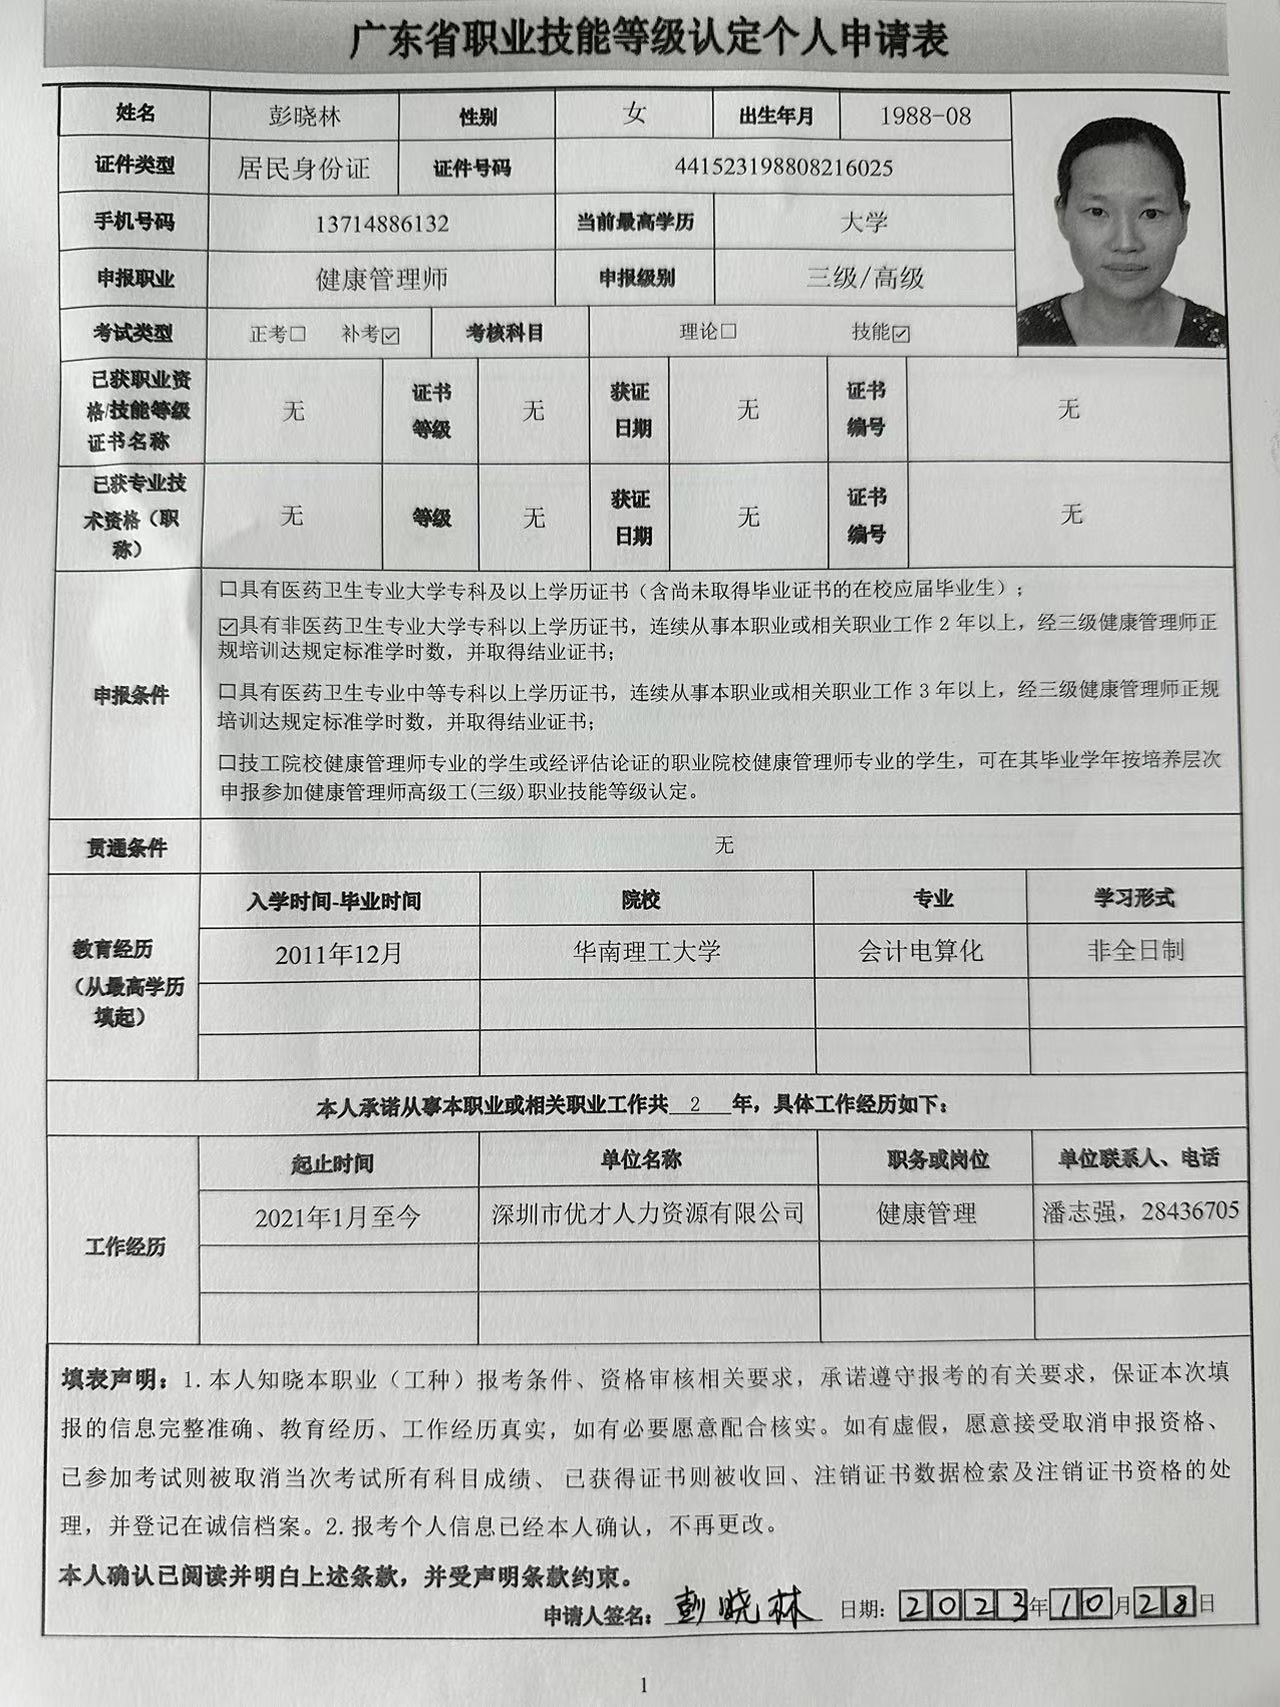 广东省职业技能等级认定个人申请表
姓名 彭晓林 性别 女 出生年月 1988-08
证件类型 居民身份证 证件号码 441523198808216025
手机号码 13714886132 当前最高学历 大学
申报职业 健康管理师 申报级别 三级/高级
考试类型 正考☐ 补考☑ 考核科目 理论☐ 技能☑
已获职业资格/技能等级证书名称 无 证书等级 无 获证日期 无 证书编号 无
已获专业技术资格（职称） 无 等级 无 获证日期 无 证书编号 无
申报条件
☐具有医药卫生专业大学专科及以上学历证书（含尚未取得毕业证书的在校应届毕业生）；
☑具有非医药卫生专业大学专科以上学历证书，连续从事本职业或相关职业工作 2 年以上，经三级健康管理师正
规培训达规定标准学时数，并取得结业证书；
☐具有医药卫生专业中等专科以上学历证书，连续从事本职业或相关职业工作 3 年以上，经三级健康管理师正规
培训达规定标准学时数，并取得结业证书；
☐技工院校健康管理师专业的学生或经评估论证的职业院校健康管理师专业的学生，可在其毕业学年按培养层次
申报参加健康管理师高级工(三级)职业技能等级认定。
贯通条件 无
教育经历（从最高学历填起）
入学时间-毕业时间 院校 专业 学习形式
2011年12月 华南理工大学 会计电算化 非全日制
本人承诺从事本职业或相关职业工作共 2 年，具体工作经历如下：
工作经历
起止时间 单位名称 职务或岗位 单位联系人、电话
2021年1月至今 深圳市优才人力资源有限公司 健康管理 潘志强，28436705
填表声明：1.本人知晓本职业（工种）报考条件、资格审核相关要求，承诺遵守报考的有关要求，保证本次填
报的信息完整准确、教育经历、工作经历真实，如有必要愿意配合核实。如有虚假，愿意接受取消申报资格、
已参加考试则被取消当次考试所有科目成绩、已获得证书则被收回、注销证书数据检索及注销证书资格的处
理，并登记在诚信档案。2.报考个人信息已经本人确认，不再更改。
本人确认已阅读并明白上述条款，并受声明条款约束。
申请人签名：彭晓林 日期：2023年10月28日
1